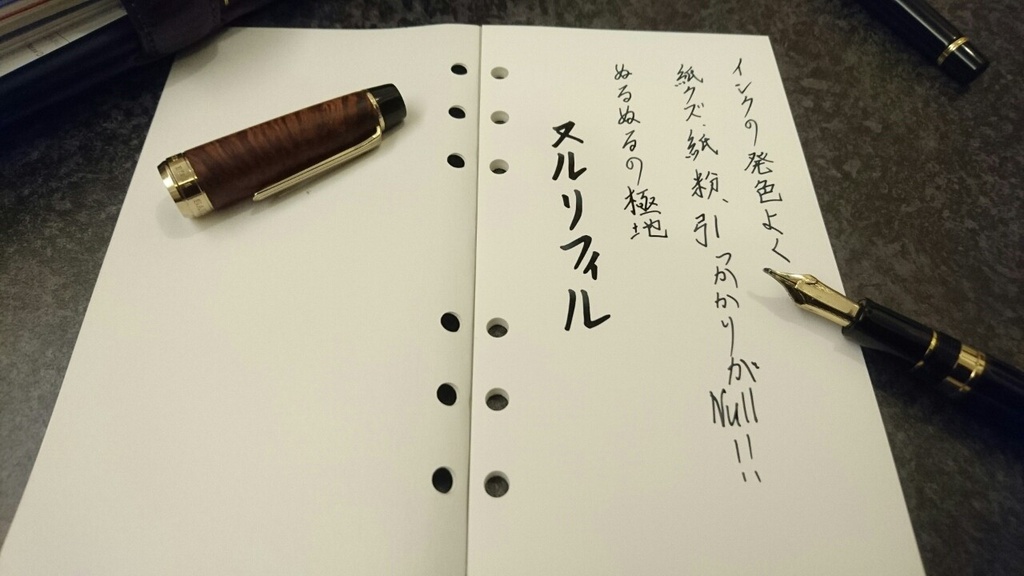 インクの発色よく
紙クズ、紙粉、引っかかりがNull!!
ぬるぬるの極地
ヌルリフィル